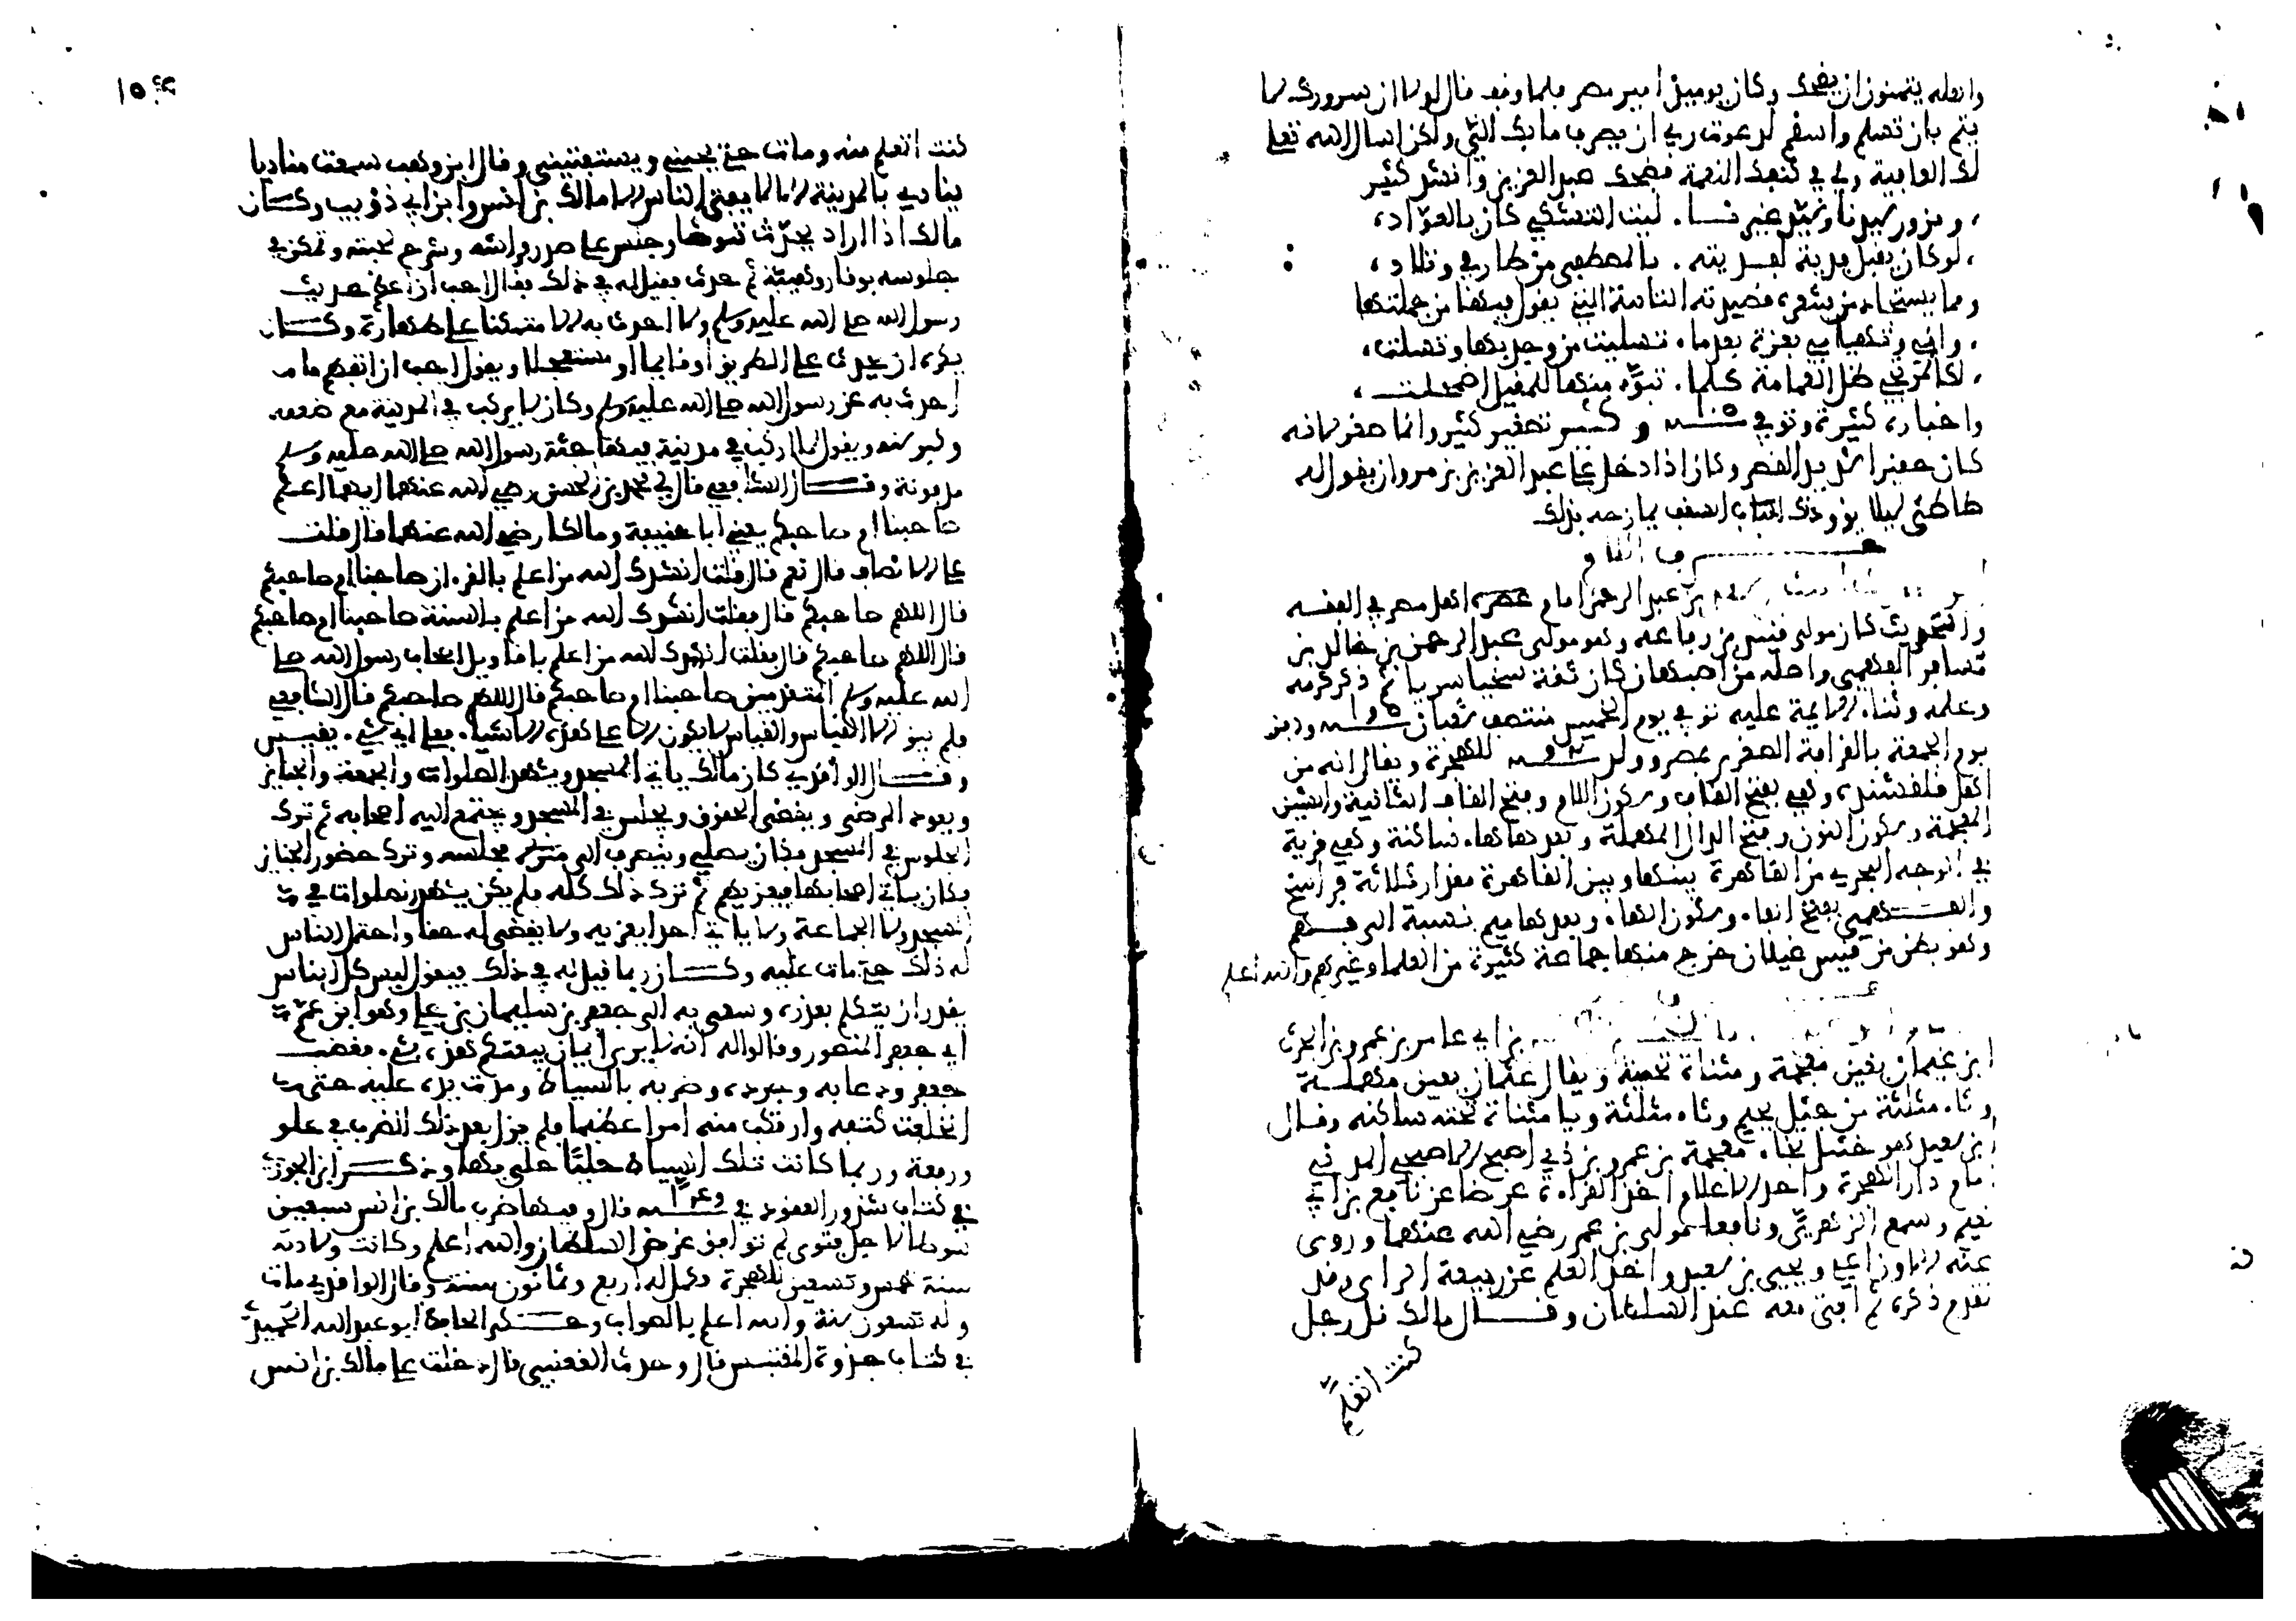 واهله يتمنون ان يضحك وكان يومئذ امير مصر فلما وقف قال لولا ان سرورك لا
يتم بان تسلم واسقم لدعوت ربي ان يصرف ما بك الي ولكن اسال الله تعلى
لك العافية ولي في كنفك النعمة فضحك عبد العزيز وانشد كثير
ونزور سيدنا وسيد غيرنا . ليت التشكي كان بالعواد
لو كان يقبل فدية لفديته . بالمصطفى من طارفي وتلادي
ومما يستجاد من شعره قصيدته التائية التي يقول فيها من جملتها
واني وتهيامي بعزة بعدما . تسليت من وجد بها وتسلت
لكالمرتجي ظل الغمامة كلما . تبوء منها للمقيل اضمحلت
واخباره كثيرة وتوفي سنة ١٠٥ وكثير تصغير كثير وانما صغر لانه
كان حقيرا شديد القصر وكان اذا دخل على عبد العزيز بن مروان يقول له
طاطئ ليلا يوذيك السقف يمازحه بذلك
حرف اللام
بن عبد الرحمن امام عصره اهل مصر في الفقه
والحديث كان مولى قيس بن رفاعة وهو مولى عبد الرحمن بن خالد بن
مسافر الفهمي واصله من اصبهان كان ثقة سخيا سريا ثم ذكر كرمه
وعلمه وثناء الايمة عليه توفي يوم الخميس منتصف شعبان ودفن
يوم الجمعة بالقرافة الصغرى بمصر وولد للهجرة ويقال انه من
اهل قلقشندة وهي بفتح القاف وسكون اللام وفتح القاف الثانية والشين
المعجمة وسكون النون وفتح الدال المهملة وبعدها هاء ساكنة وهي قرية
في الوجه البحري من القاهرة بينها وبين القاهرة مقدار ثلاثة فراسخ
والفهمي بفتح الفاء وسكون الهاء وبعدها ميم نسبة الى فهم
وهو بطن من قيس غيلان خرج منها جماعة كثيرة من العلما وغيرهم والله اعلم
بن ابي عامر بن عمرو بن الحرث
ابن غيمان بغين معجمة ومثناة تحتية ويقال عثمان بعين مهملة
وثاء مثلثة بن جثيل بجيم وثاء مثلثة ويا مثناة تحتية ساكنه وقال
ابن سعيد هو خثيل بخاء معجمة بن عمرو بن ذي اصبح الاصبحي المدني
امام دار الهجرة واحد الاعلام اخذ القراءة عرضا عن نافع بن ابي
نعيم وسمع الزهري ونافعا مولى بن عمر رضي الله عنهما وروى
عنه الاوزاعي ويحيى بن سعيد واخذ العلم عن ربيعة الراي وقد
تقدم ذكره ثم افتى معه عند السلطان وقال مالك قل رجل
كنت اتعلم
كنت اتعلم منه ومات حتى يجيئني ويستفتيني وقال ابن وهب سمعت مناديا
ينادي بالمدينة الا لا يفتي الناس الا مالك بن انس وابن ابي ذؤيب وكان
مالك اذا اراد يحدث توضا وجلس على صدر فراشه وسرح لحيته وتمكن في
جلوسه بوقار وهيبة ثم حدث فقيل له في ذلك فقال احب ان اعظم حديث
رسول الله صلى الله عليه وسلم ولا احدث به الا متمكنا على طهارة وكان
يكره ان يحدث على الطريق او قايما او مستعجلا ويقول احب ان اتفهم ما
احدث به عن رسول الله صلى الله عليه وسلم وكان لا يركب في المدينة مع ضعفه
وكبر سنه ويقول لا اركب في مدينة فيها جثة رسول الله صلى الله عليه وسلم
مدفونة وقال الشافعي قال لي محمد بن الحسن رضي الله عنهما ايهما اعلم
صاحبنا ام صاحبكم يعني ابا حنيفة ومالكا رضي الله عنهما قال قلت
على الانصاف قال نعم قال قلت انشدك الله من اعلم بالقرءان صاحبنا ام صاحبكم
قال اللهم صاحبكم قال فقلت انشدك الله من اعلم بالسنة صاحبنا ام صاحبكم
قال اللهم صاحبكم قال فقلت انشدك الله من اعلم باقاويل اصحاب رسول الله صلى
الله عليه وسلم المتقدمين صاحبنا ام صاحبكم قال اللهم صاحبكم قال الشافعي
ولم يبق الا القياس والقياس لا يكون الا على هذه الاشياء فعلى اي شيء يقيس
وقال الواقدي كان مالك ياتي المسجد ويشهد الصلوات والجمعة والجنايز
ويعود المرضى ويقضي الحقوق ويجلس في المسجد ويجتمع اليه اصحابه ثم ترك
الجلوس في المسجد فكان يصلي وينصرف الى مجلسه وترك حضور الجنايز
فكان ياتي اصحابها فيعزيهم ثم ترك ذلك كله فلم يكن يشهد الصلوات في
المسجد ولا الجماعة ولا ياتي احدا يعزيه ولا يقضي له حقا واحتمل الناس
له ذلك حتى مات عليه وكان ربما قيل له في ذلك فيقول ليس كل الناس
يقدر ان يتكلم بعذره وسعى به الى جعفر بن سليمان بن علي وهو ابن عم
ابي جعفر المنصور وقالوا له انه لا يرى ايمان بيعتكم هذه بشيء فغضب
جعفر ودعا به وجرده وضربه بالسياط ومدت يده عليه حتى
انخلعت كتفه وارتكب منه امرا عظيما فلم يزل بعد ذلك الضرب في علو
ورفعة وربما كانت تلك السياط حليا حلي بها وذكر ابن الجوزي
في كتاب شذور العقود في سنة قال وفيها ضرب مالك بن انس سبعين
سوطا لاجل فتوى لم توافق غرض السلطان والله اعلم وكانت ولادته
سنة خمس وتسعين للهجرة فكمل له اربع وثمانون سنة وقال الواقدي مات
وله تسعون سنة والله اعلم بالصواب وحكى الحافظ ابو عبد الله الحميدي
في كتاب جذوة المقتبس قال وحدث القعنبي قال دخلت على مالك بن انس